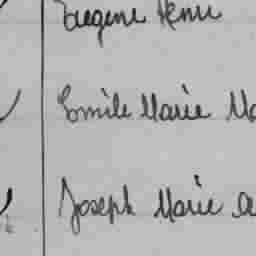 Eugène Henri
Emile Marie Ma
Joseph Marie a